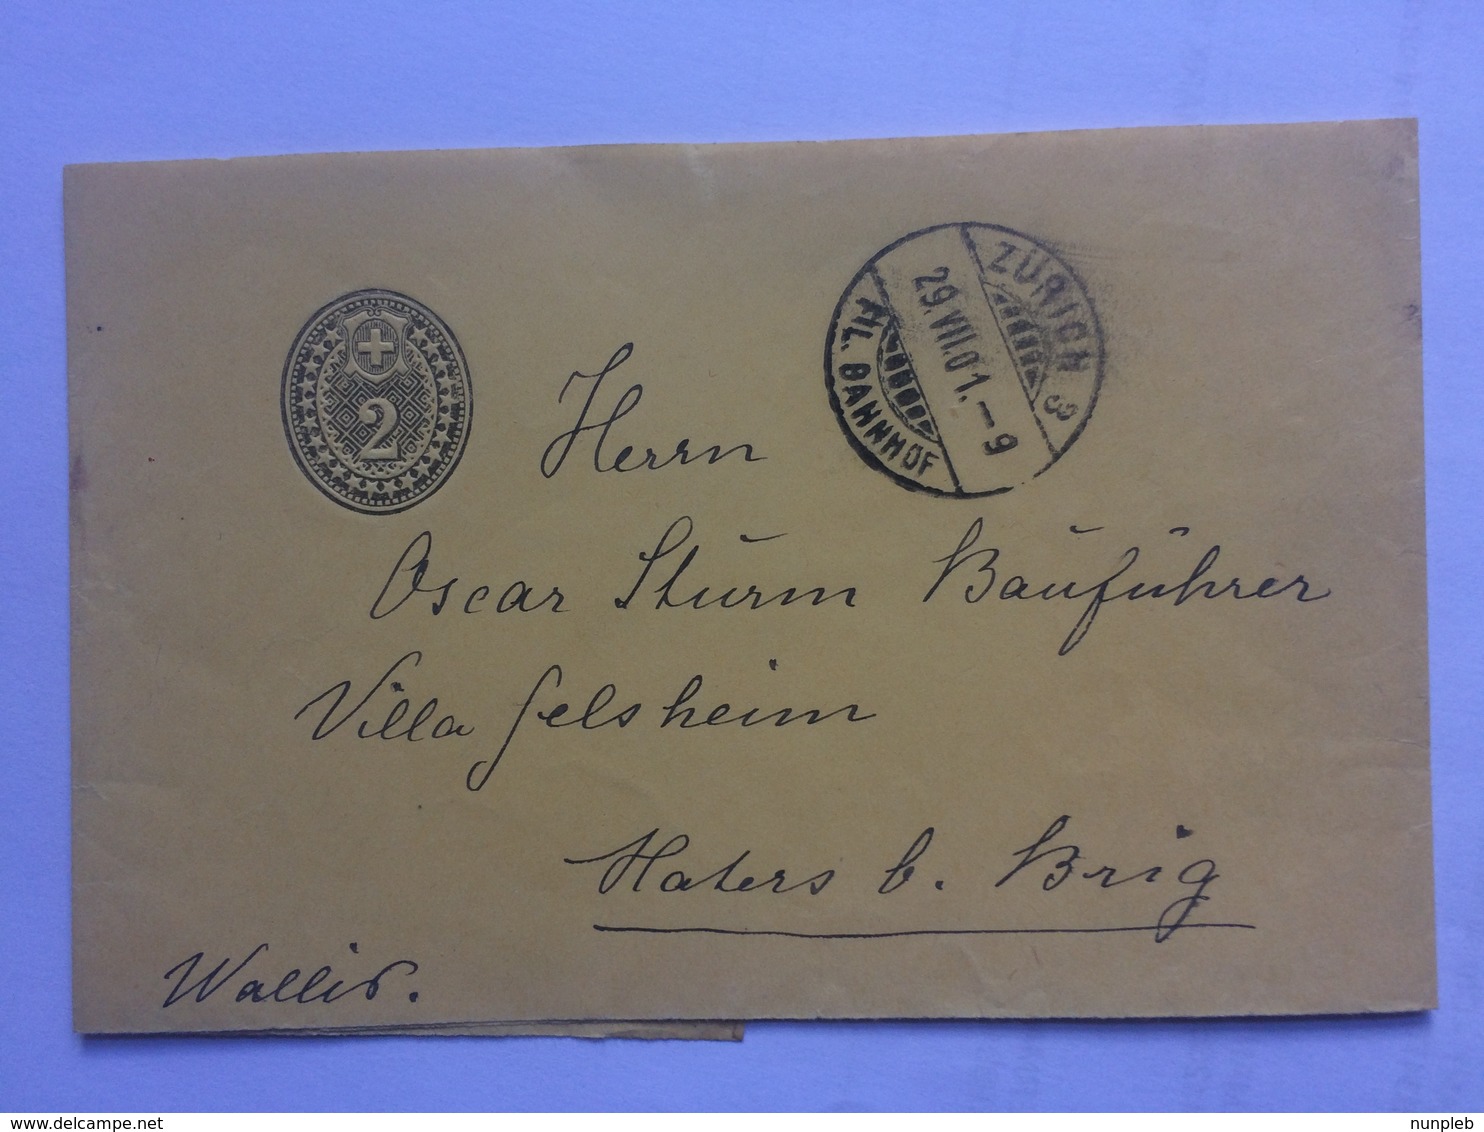 2
ZÜRICH 3
29.VII.01.-9
FIL. BAHNHOF
Herrn
Oscar Sturm Bauführer
Villa Gelsheim
Naters b. Brig
Wallis.
www.delcampe.net
nunpleb